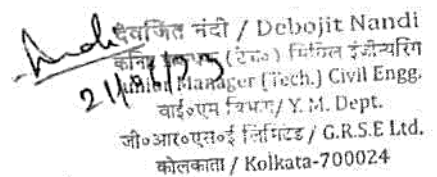 देवजित नंदी / Debojit Nandi
(टेक०) सिविल इंजीनियरिंग
Manager (Tech.) Civil Engg.
वाई०एम विभाग / Y. M. Dept.
जी०आर०एस०ई लिमिटेड / G.R.S.E Ltd.
कोलकाता / Kolkata-700024